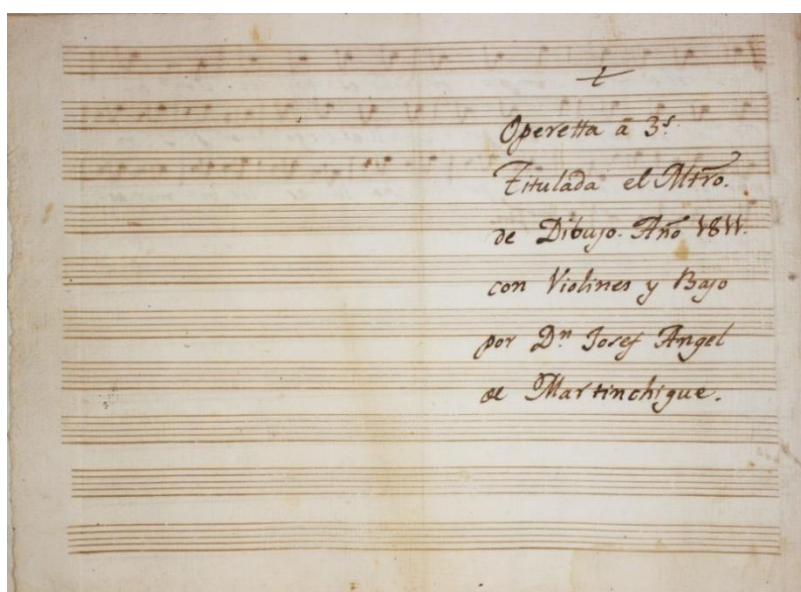 Operetta â 3.s
Titulada el Mtro.
de Dibujo. Año 1811.
con Violines y Bajo
por Dn Josef Angel
de Martinchique.